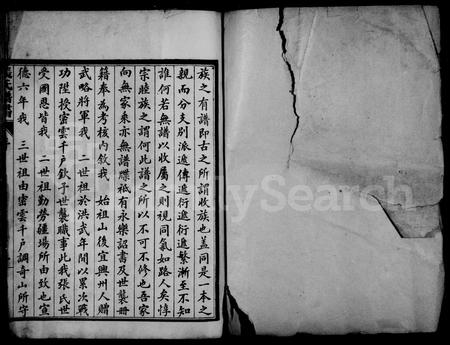 族之有譜即古之所謂收族也蓋同是一本之
親而分支別派遞傳遞衍遞繁漸至不知
誰何若無譜以收屬之則視同氣如路人矣惇
宗睦族之謂何此譜之所以不可不修也吾家
向無家乘亦無譜牒祇有永樂詔書及世襲冊
籍奉為考核內敘我 始祖山後宜興州人贈
武略將軍我 二世祖於洪武年間以累次戰
功陞授密雲千戶欽予世襲職事此我張氏世
受國恩皆我 二世祖勤勞疆場所由致也宣
德六年我 三世祖由密雲千戶調奇山所守
氏譜書
FamilySearch